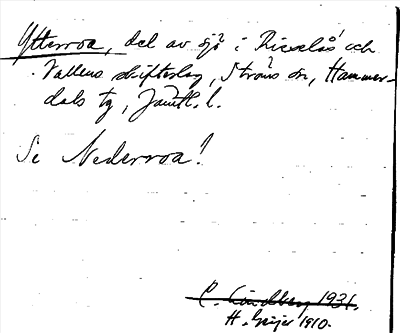 Ytterroa, del av sjö i Risselås och
Vallens skifteslag, Ströms sn, Hammer-
dals tg, Jämtl. l.
Se Nederroa!
C. Lindberg 1931.
H. Geijer 1910.